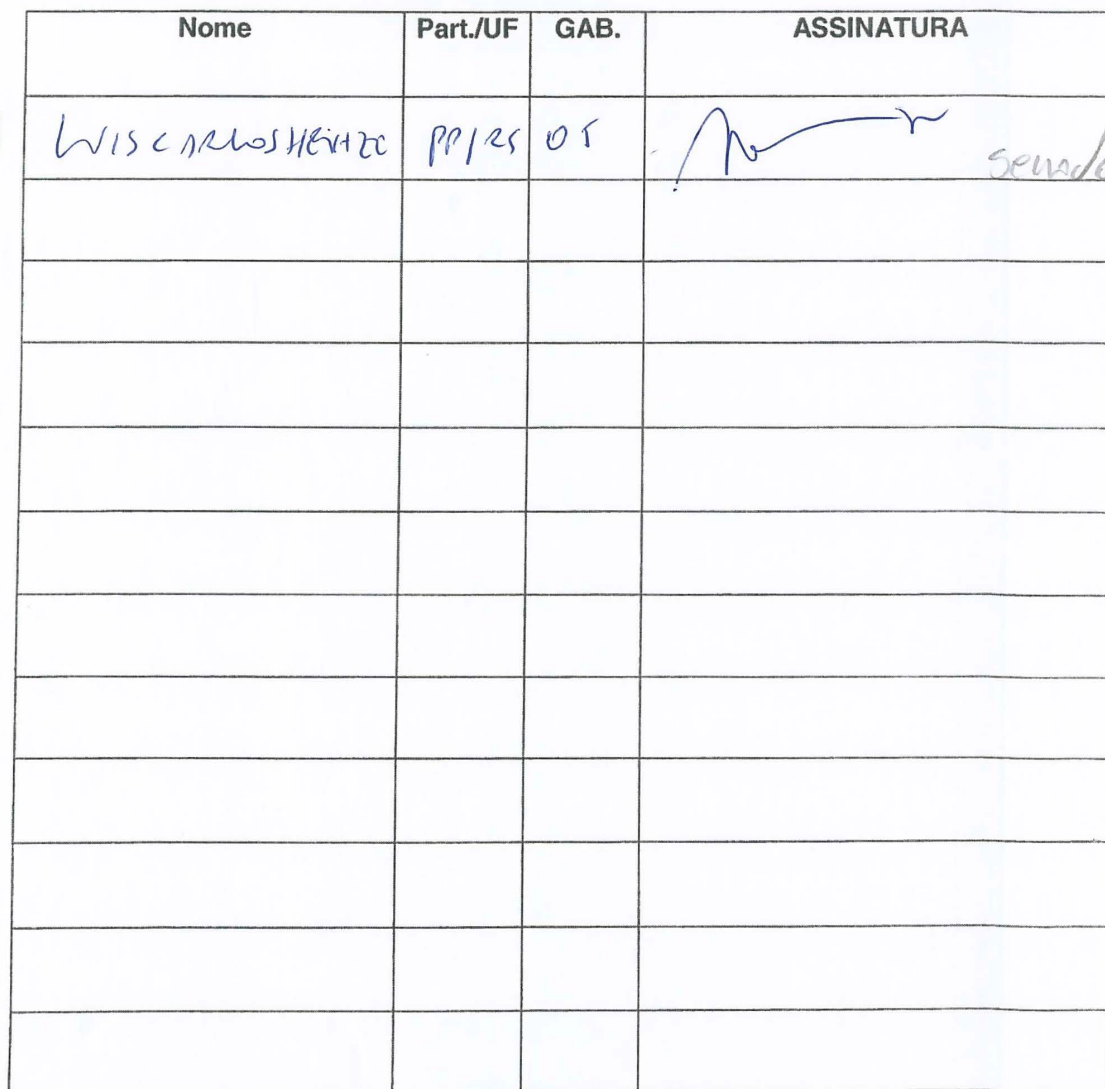 Nome Part./UF GAB. ASSINATURA
LUIS CARLOS HEINZE PP/RS 05